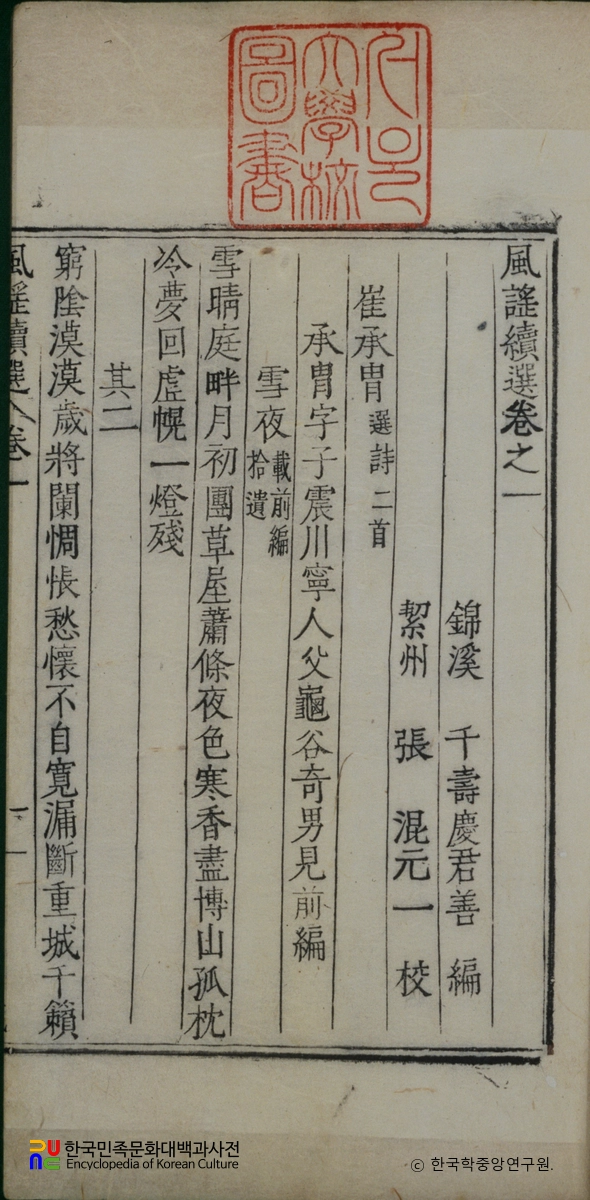 서울大學校圖書
風謠續選卷之一
錦溪 千壽慶君善 編
絜州 張 混元一 校
崔承胄 選詩二首
承胄字子震川寧人父龜谷奇男見前編
雪夜 載前編拾遺
雪晴庭畔月初團草屋蕭條夜色寒香盡博山孤枕
冷夢回虛幌一燈殘
其二
窮陰漠漠歲將闌惆悵愁懷不自寬漏斷重城千籟
風謠續選 卷一
一
한국민족문화대백과사전
Encyclopedia of Korean Culture
© 한국학중앙연구원.